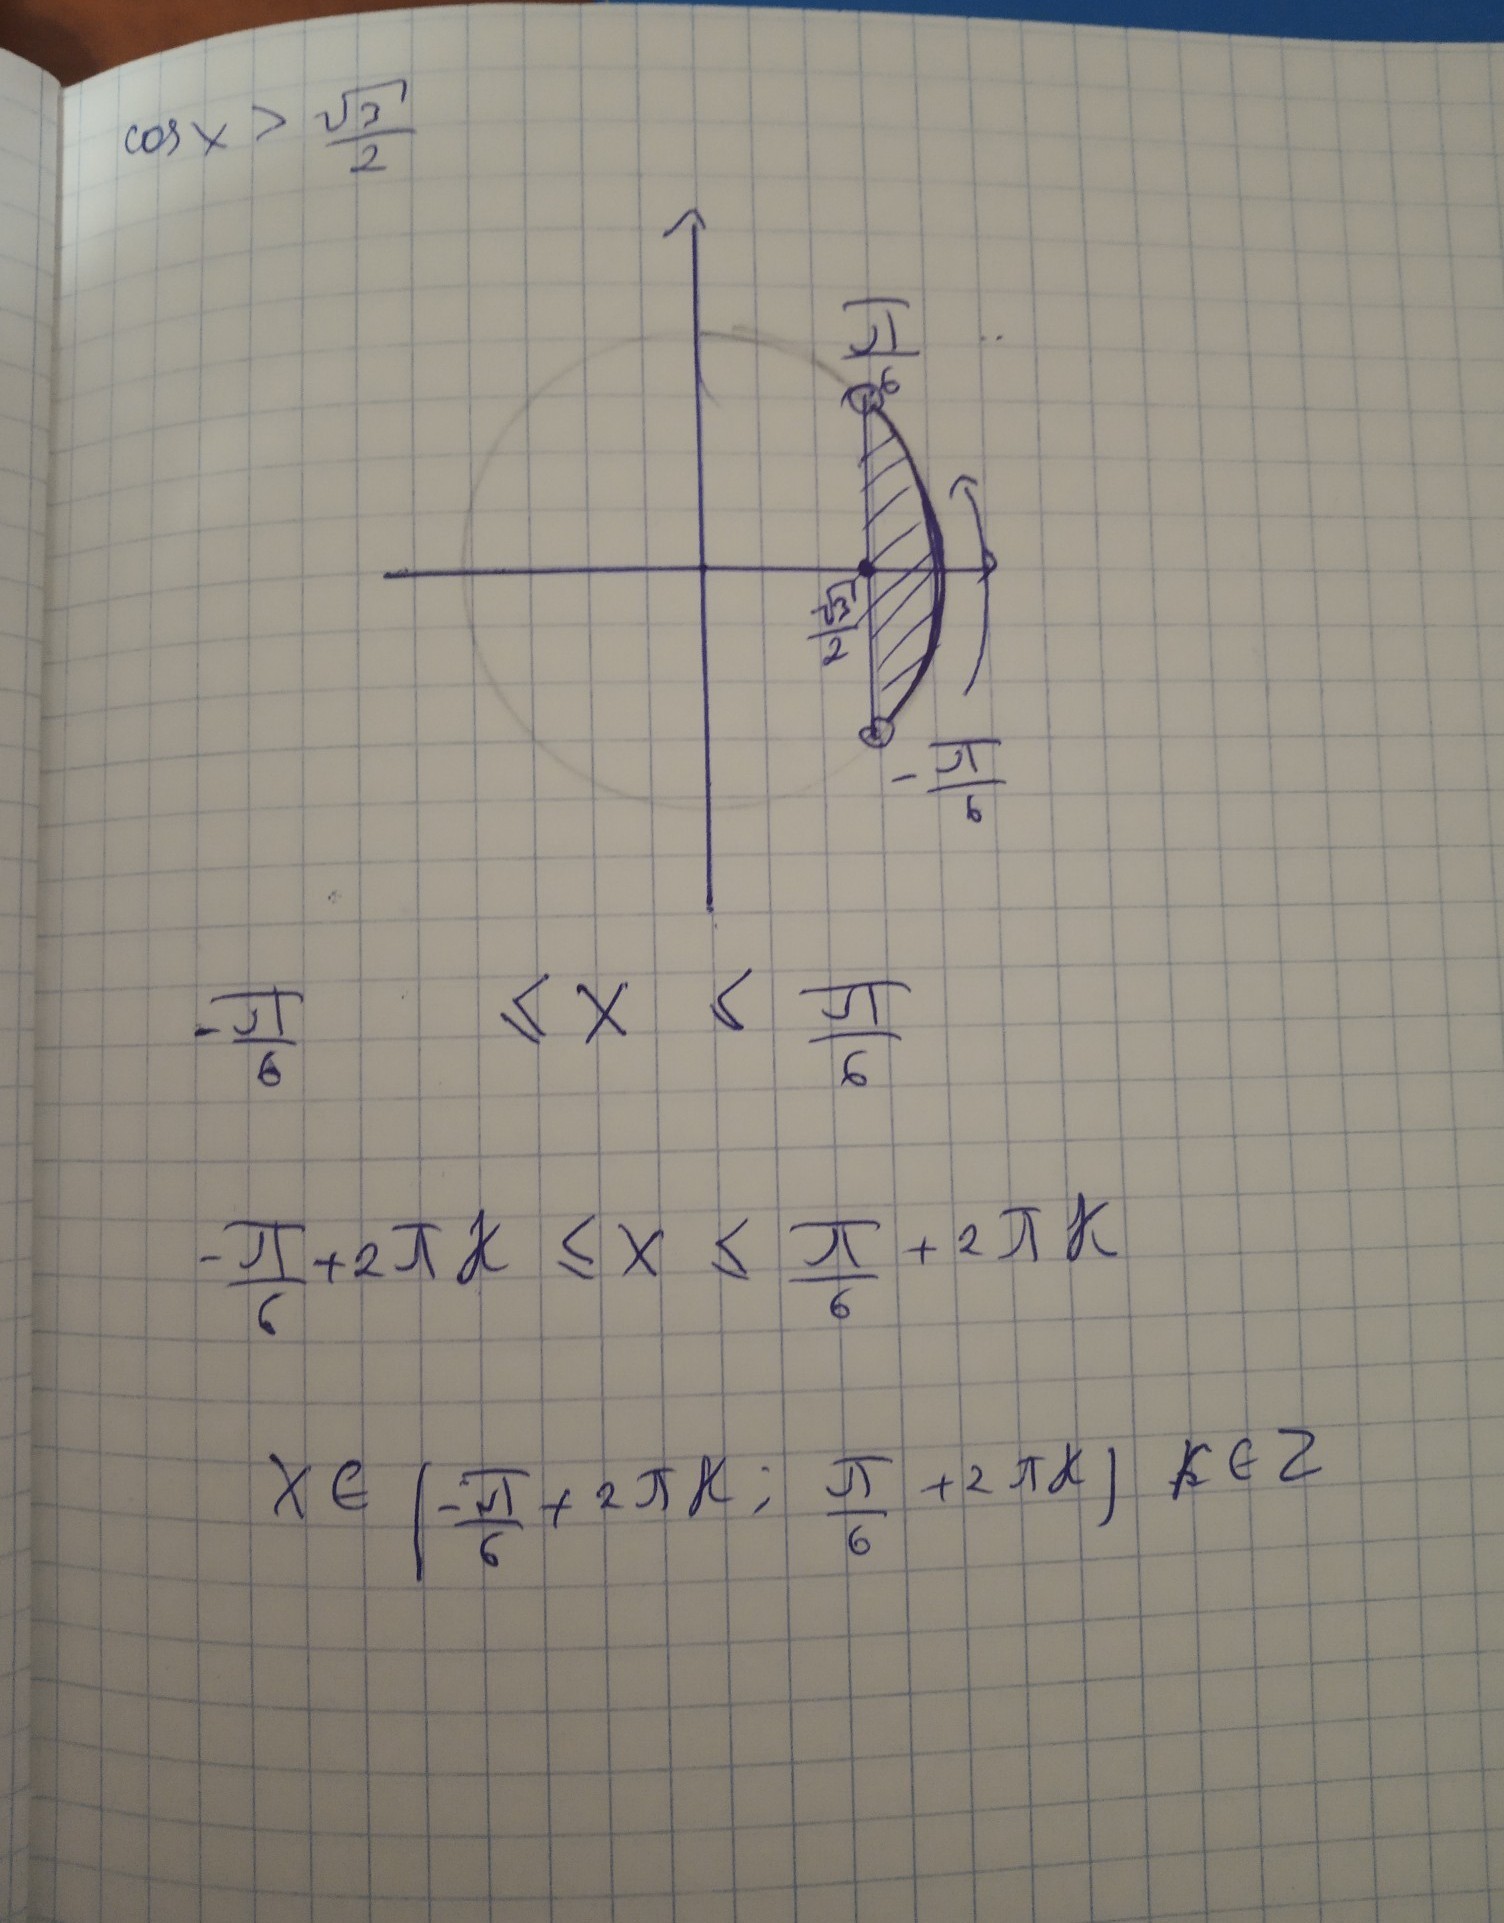 cos x > √3/2
π/6
√3/2
-π/6
-π/6 ≤ x < π/6
-π/6 + 2πk ≤ x ≤ π/6 + 2πk
x ∈ [-π/6 + 2πk; π/6 + 2πk] k ∈ Z